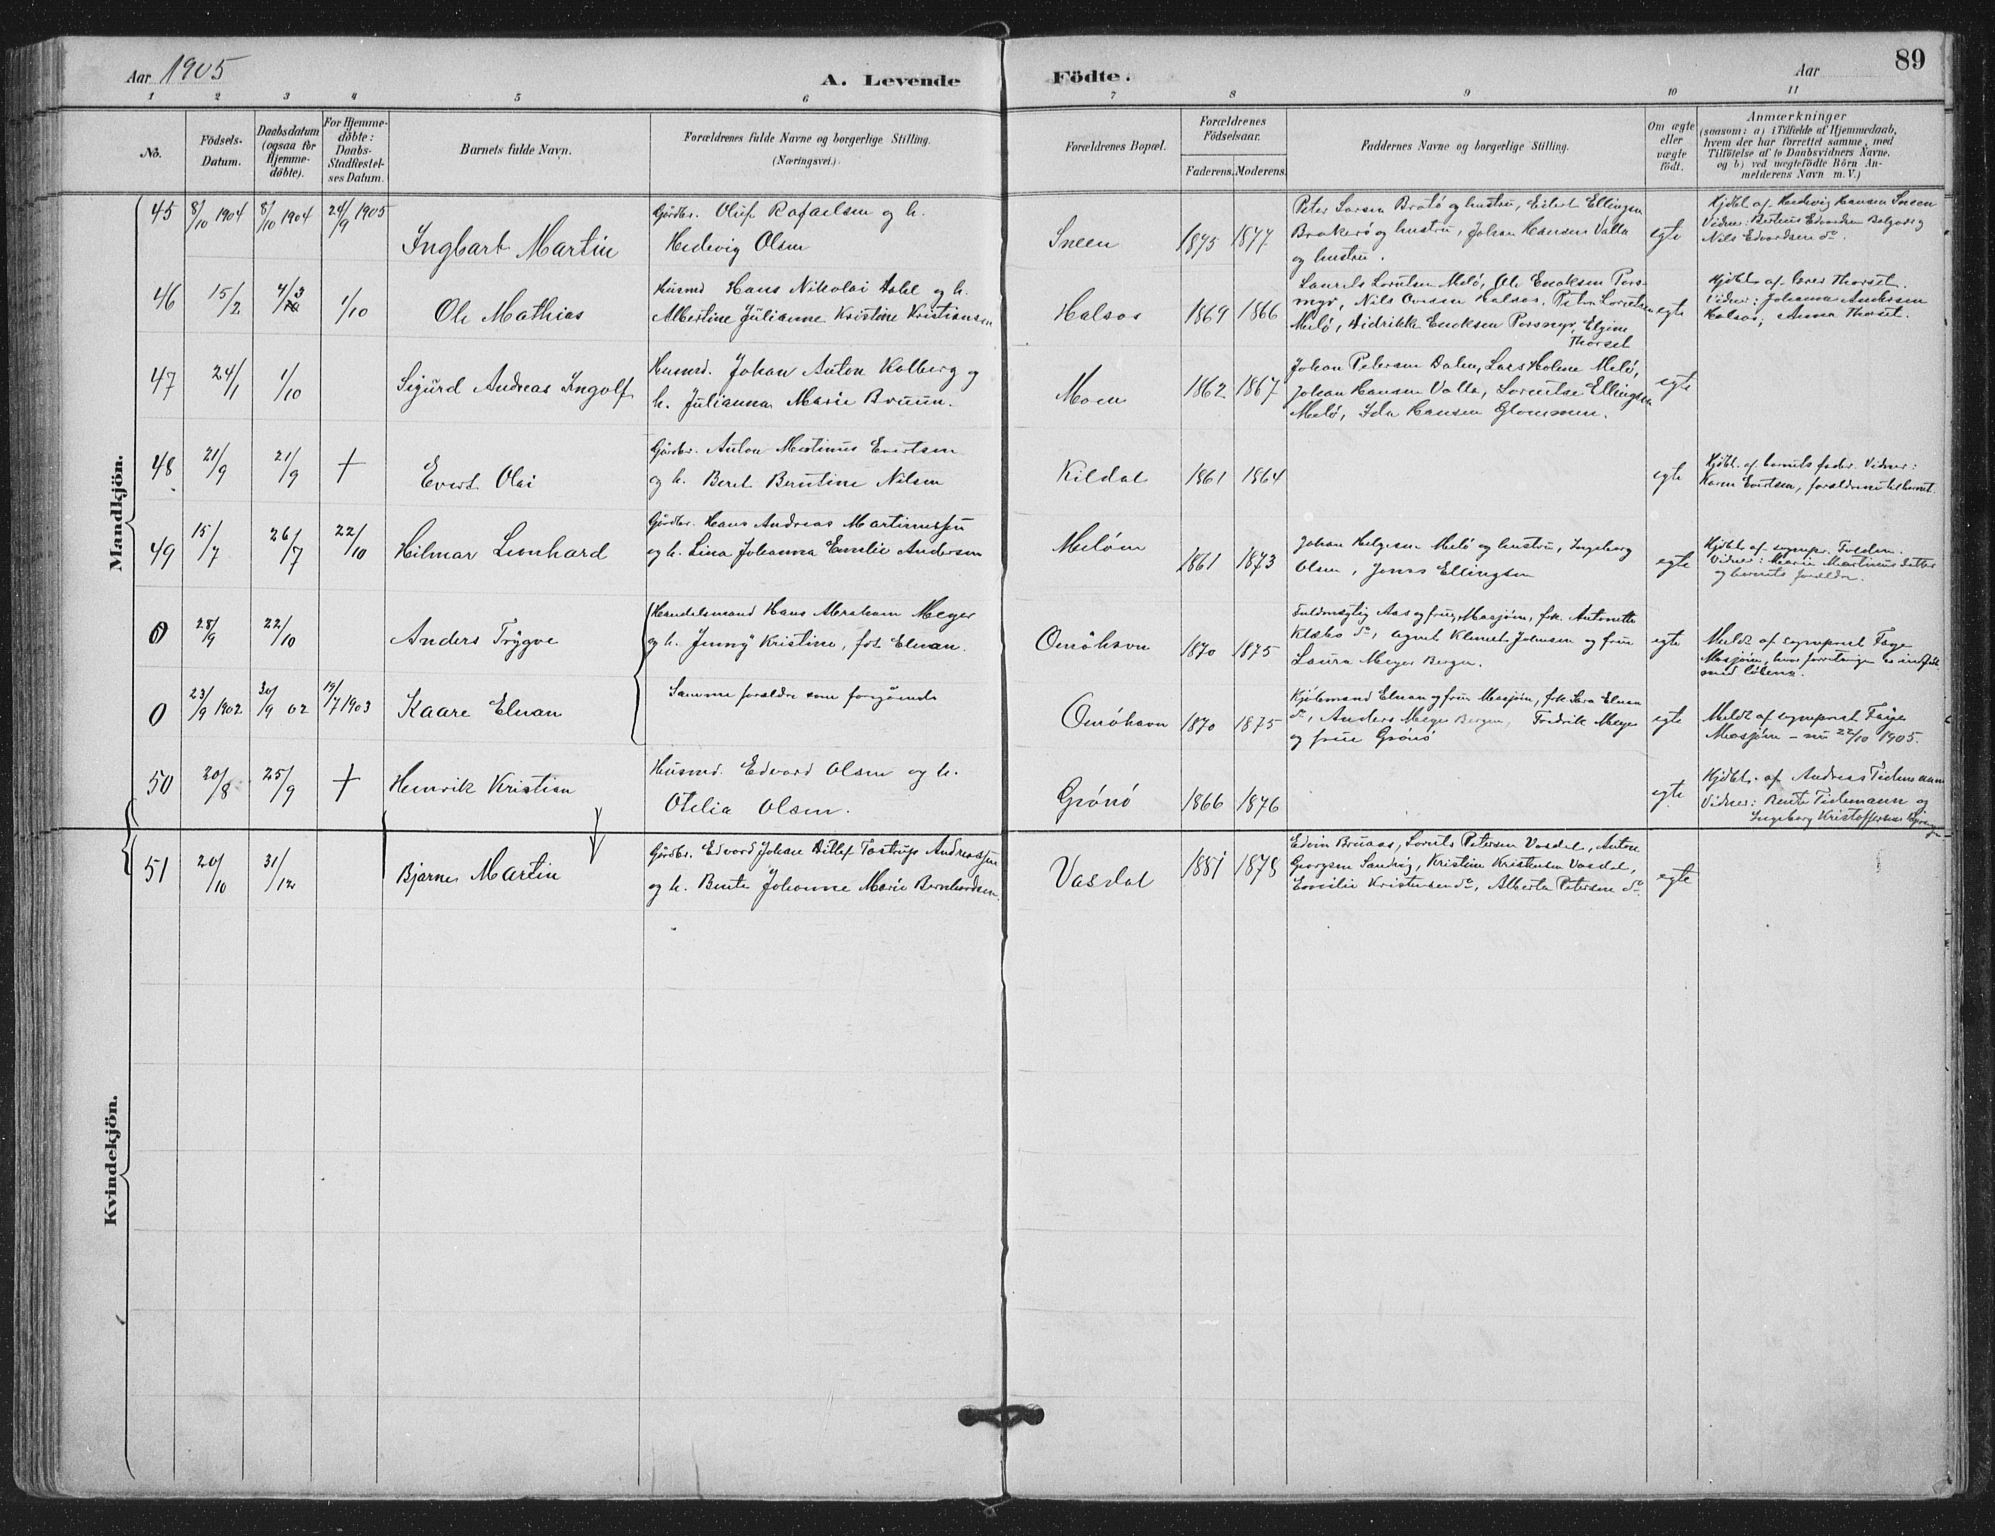 Aar 1905
A. Levende
Födte.
Aar
89
1 2 3 4 5 6 7 8 9 10 11
No.
Födsels-
Datum.
Daabsdatum
(ogsaa for
Hjemme-
döbte).
For Hjemme-
döbte:
Daabs-
Stadfestel-
ses Datum.
Barnets fulde Navn.
Forældrenes fulde Navne og borgerlige Stilling.
(Næringsvei.)
Forældrenes Bopæl.
Forældrenes
Födselsaar.
Faderens. Moderens.
Faddernes Navne og borgerlige Stilling.
Om ægte
eller
uægte
födt.
Anmærkninger
(saasom: a) i Tilfælde af Hjemmedaab,
hvem der har forrettet samme, med
Tilföielse af to Daabsvidners Navne,
og b) ved uægtefödte Börn An-
melderens Navn m. V.)
Mandkjön.
45 8/10 1904 8/10 1904 24/9 1905
Ingbart Martin
Gårdbr. Oluf Rafaelsen og h.
Hedevig Olsen
Sneen
1875 1877
Peter Larsen Bratö og hustru, Eilert Ellingsen
og hustru, Johan Hansen Valla
og hustru.
egte
Hjdbt. af Hedevig Hansen
Vidner: Edvardsen
Nils Edvardsen do.
46 15/2 4/3 1/10
Ole Mathias
Husmd Hans Nikolai Dahl og h.
Albertine Julianne Kristine Kristiansen
Halsos
1869 1866
Laurits Lorntsen Melö, Ole Enoksen Pors-
myr, Nils Halsos, Peter Lorntsen
Melö, Didrikke Enoksen Porsmyr, Elgine
Thorset
egte
Hjdbt. af Thorset.
Vidner: Johanna Andersen
Halsos, Anna Thorset.
47 24/1 1/10
Sigurd Andreas Ingolf
Husmd. Johan Anton Kolberg og
h. Julianna Marie Bruun.
Moen
1862 1867
Johan Petersen Dalen, Lars Holene Melö,
Johan Hansen Valla, Lorentse Ellingsen
Melö, Ida Hansen Glommen.
egte
48 21/9 21/9 +
Evert Olai
Gårdbr. Anton Martinus Evertsen
og h. Beret Berntine Nilsen
Kildal
1861 1864
egte
Hjdbt. af barnets fader. Vidner:
Karen Evertsen, forældrene til barnet.
49 15/7 26/7 22/10
Hilmar Lenhard
Gårdbr. Hans Andreas Martinussen
og h. Lina Johanna Emilie Andersen
Melöen
1861 1873
Johan Helgesen Melö og hustru, Ingeborg
Olsen, Jonas Ellingsen
egte
Hjdbt. af sognepr. Folden.
Vidner: Marie Martinusdatter
og barnets forældre.
0 28/9 22/10
Anders Trygve
Handelsmand Hans Abraham Meyer
og h. Jenny Kristine, föt Elnan.
Onöhavn
1870 1875
Fuldmægtig Aas og frue, Mosjöen, frk. Antonette
Klæbo do, agent Klemet Johnsen og frue
Laura Meyer Bergen.
egte
Meldt af sogneprest Faye
Mosjöen, hvor forretningen er indfört
med löbenr.
0 23/9 1902 30/9 02 19/7 1903
Kaare Elnan
Samme forældre som foregående
Onöhavn
1870 1875
Kjöbmand Elnan og frue Mosjöen, frk. Sara Elnan
do, Anders Meyer Bergen, Fredrik Meyer
og frue Grönö
egte
Meldt af sogneprest Faye
Mosjöen – nu 22/10 1905.
50 20/8 25/9 +
Henrik Kristian
Husmd. Edvard Olsen og h.
Otelia Olsen.
Grönö
1866 1876
egte
Hjdbt. af Andreas Tidemann
Vidner: Bente Tidemann og
Ingeborg Kristoffersen
Kvindekjön.
51 20/10 31/12
Bjarne Martin
Gårdbr. Edvard Johan Ditlef Tostrup Andreassen
og h. Bente Johanne Marie Bernhardsen.
Vasdal
1881 1878
Edvin Bruaas, Lornts Petersen Vasdal, Anton
Georgsen Sandvig, Kristine Kristensen Vasdal,
Emilie Kristensen do, Alberta Petersen do
egte